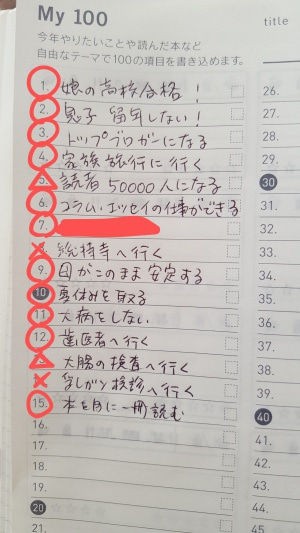 My 100
title
今年やりたいことや読んだ本など
自由なテーマで100の項目を書き込めます。
1. 娘の高校合格!
2. 息子 留年しない!
3. トップブロガーになる
4. 家族旅行に行く
5. 読者50000人になる
6. コラム・エッセイの仕事ができる
7.
8. 総持寺へ行く
9. 母がこのまま安定する
10 夏休みを取る
11. 大病をしない
12. 歯医者へ行く
大腸の検査へ行く
乳ガン検診へ行く
15. 本を月に一冊読む
16.
17.
18.
19.
20
21.
26.
27.
28.
29.
30
31.
32.
33.
34.
35.
36.
37.
38.
39.
40
41.
42.
43.
44.
45.